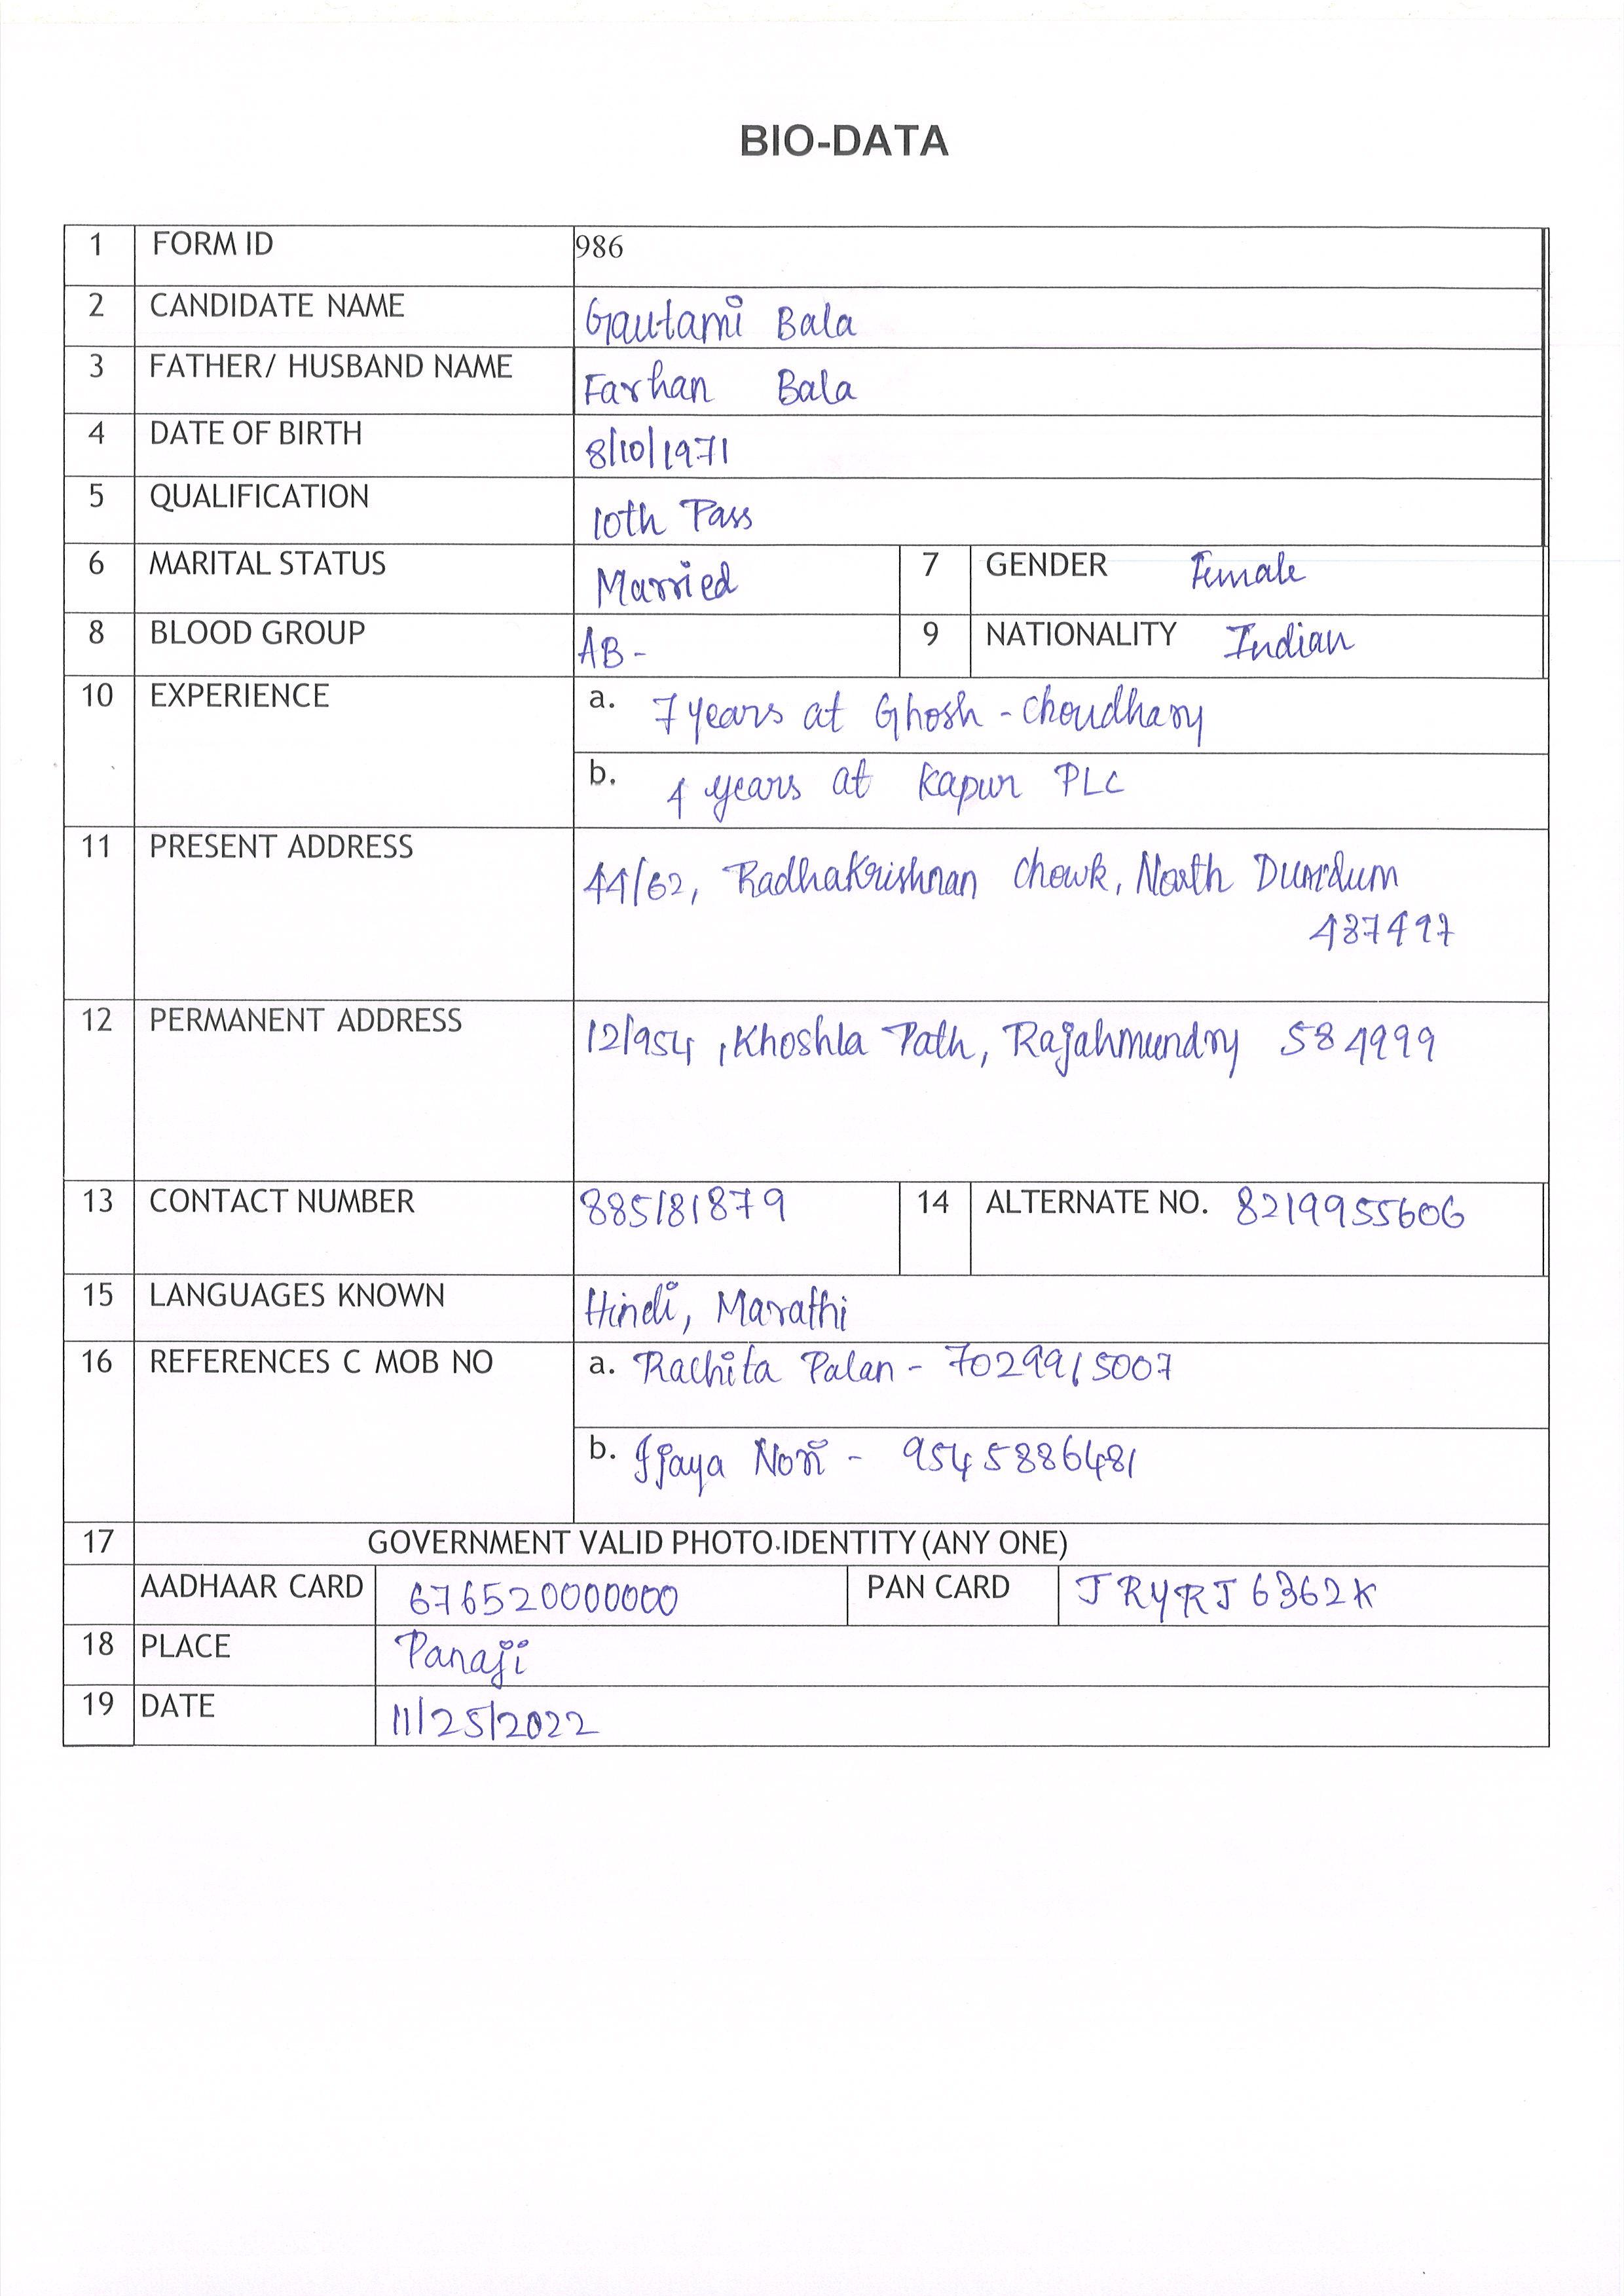 BIO-DATA
1 FORM ID 986
2 CANDIDATE NAME Gautami Bala
3 FATHER/ HUSBAND NAME Farhan Bala
4 DATE OF BIRTH 8/10/1971
5 QUALIFICATION 10th Pass
6 MARITAL STATUS Married 7 GENDER Female
8 BLOOD GROUP AB- 9 NATIONALITY Indian
10 EXPERIENCE a. 7 years at Ghosh-Choudhary
b. 4 years at Kapur PLC
11 PRESENT ADDRESS 44/62, Radhakrishnan Chowk, North Dumdum
487497
12 PERMANENT ADDRESS 12/954, Khoshla Path, Rajahmundry 584999
13 CONTACT NUMBER 885181879 14 ALTERNATE NO. 8219955606
15 LANGUAGES KNOWN Hindi, Marathi
16 REFERENCES C MOB NO a. Rachita Palan - 7029915007
b. Ijaya Nori - 9545886481
17 GOVERNMENT VALID PHOTO.IDENTITY (ANY ONE)
AADHAAR CARD 676520000000 PAN CARD JRYRJ6362K
18 PLACE Panaji
19 DATE 11/25/2022